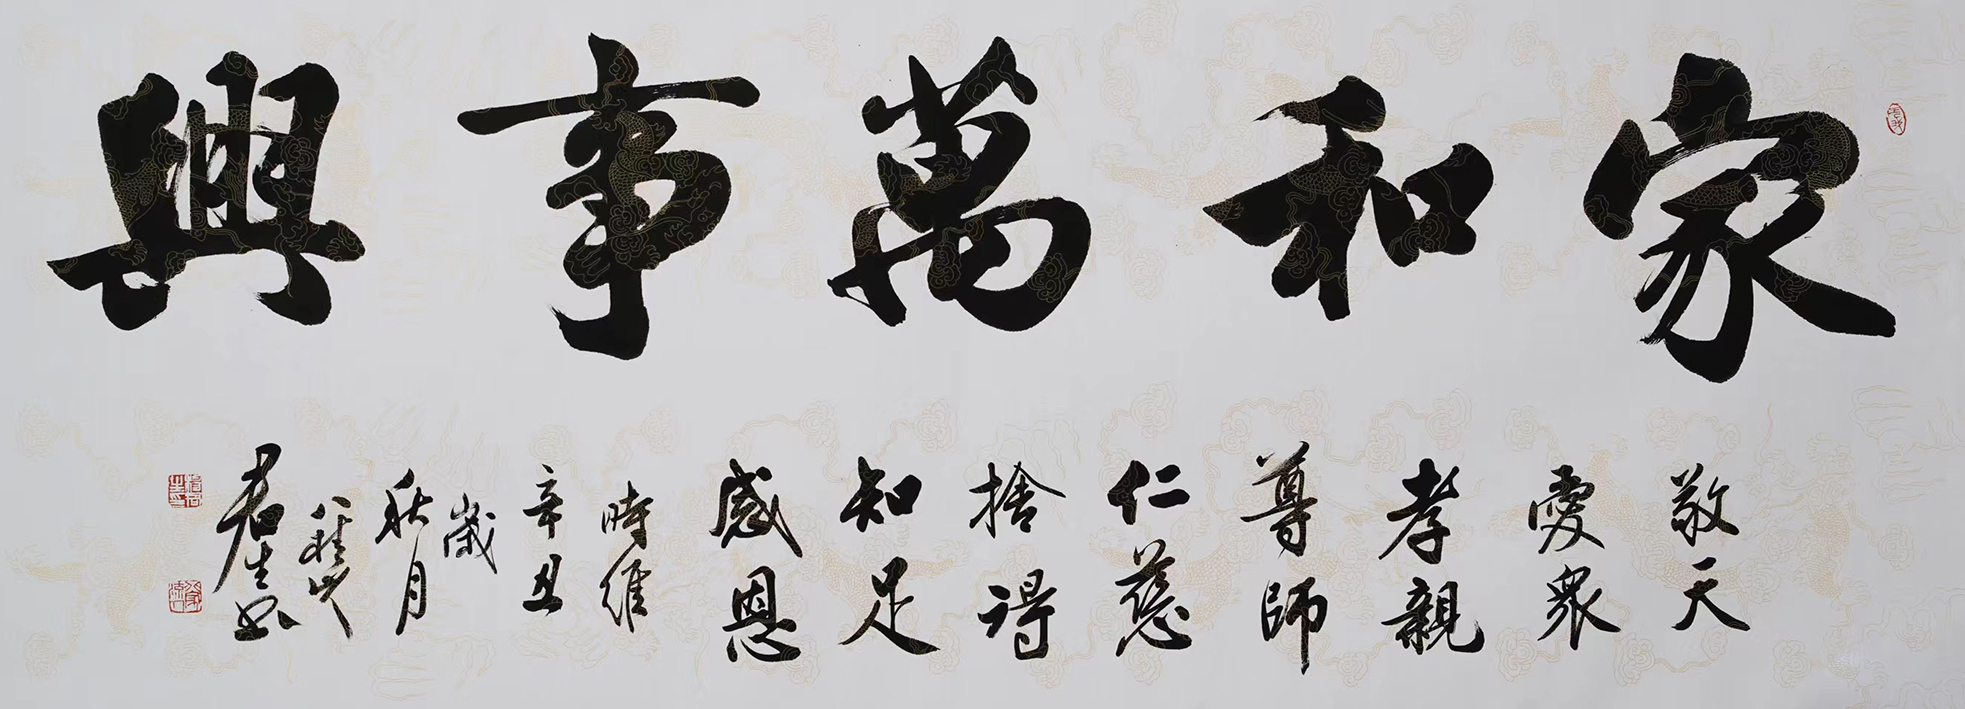 家和萬事興
敬天
愛衆
孝親
尊師
仁慈
捨得
知足
感恩
時維
辛丑
歲
秋月
君生书